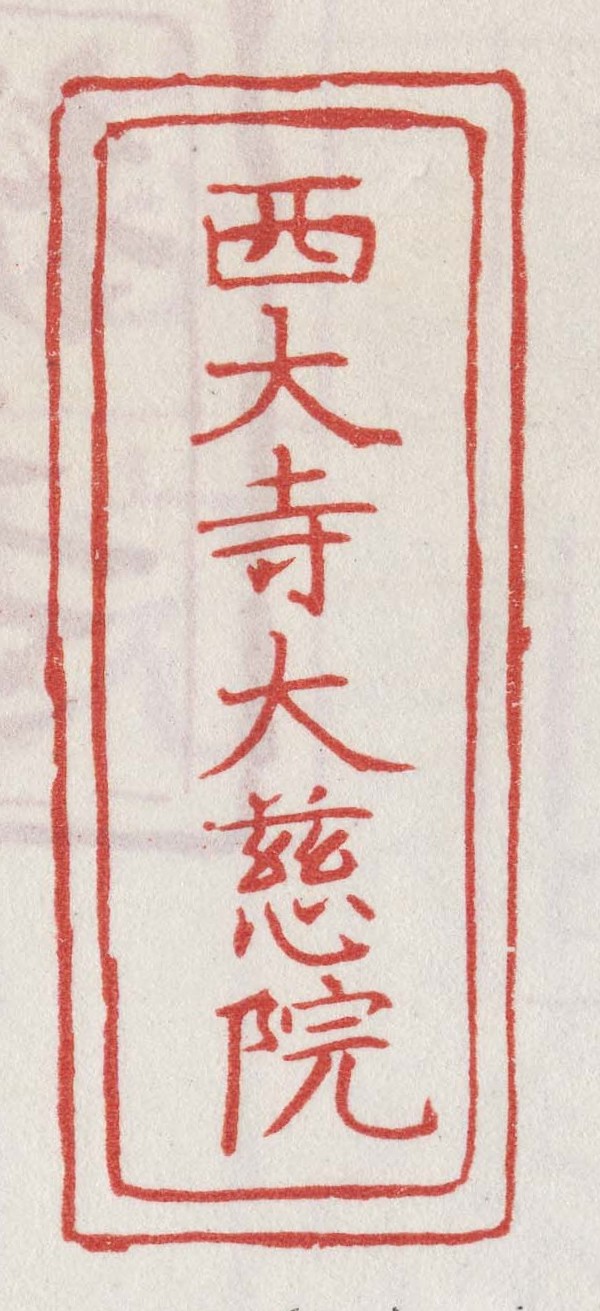 西大寺大慈院